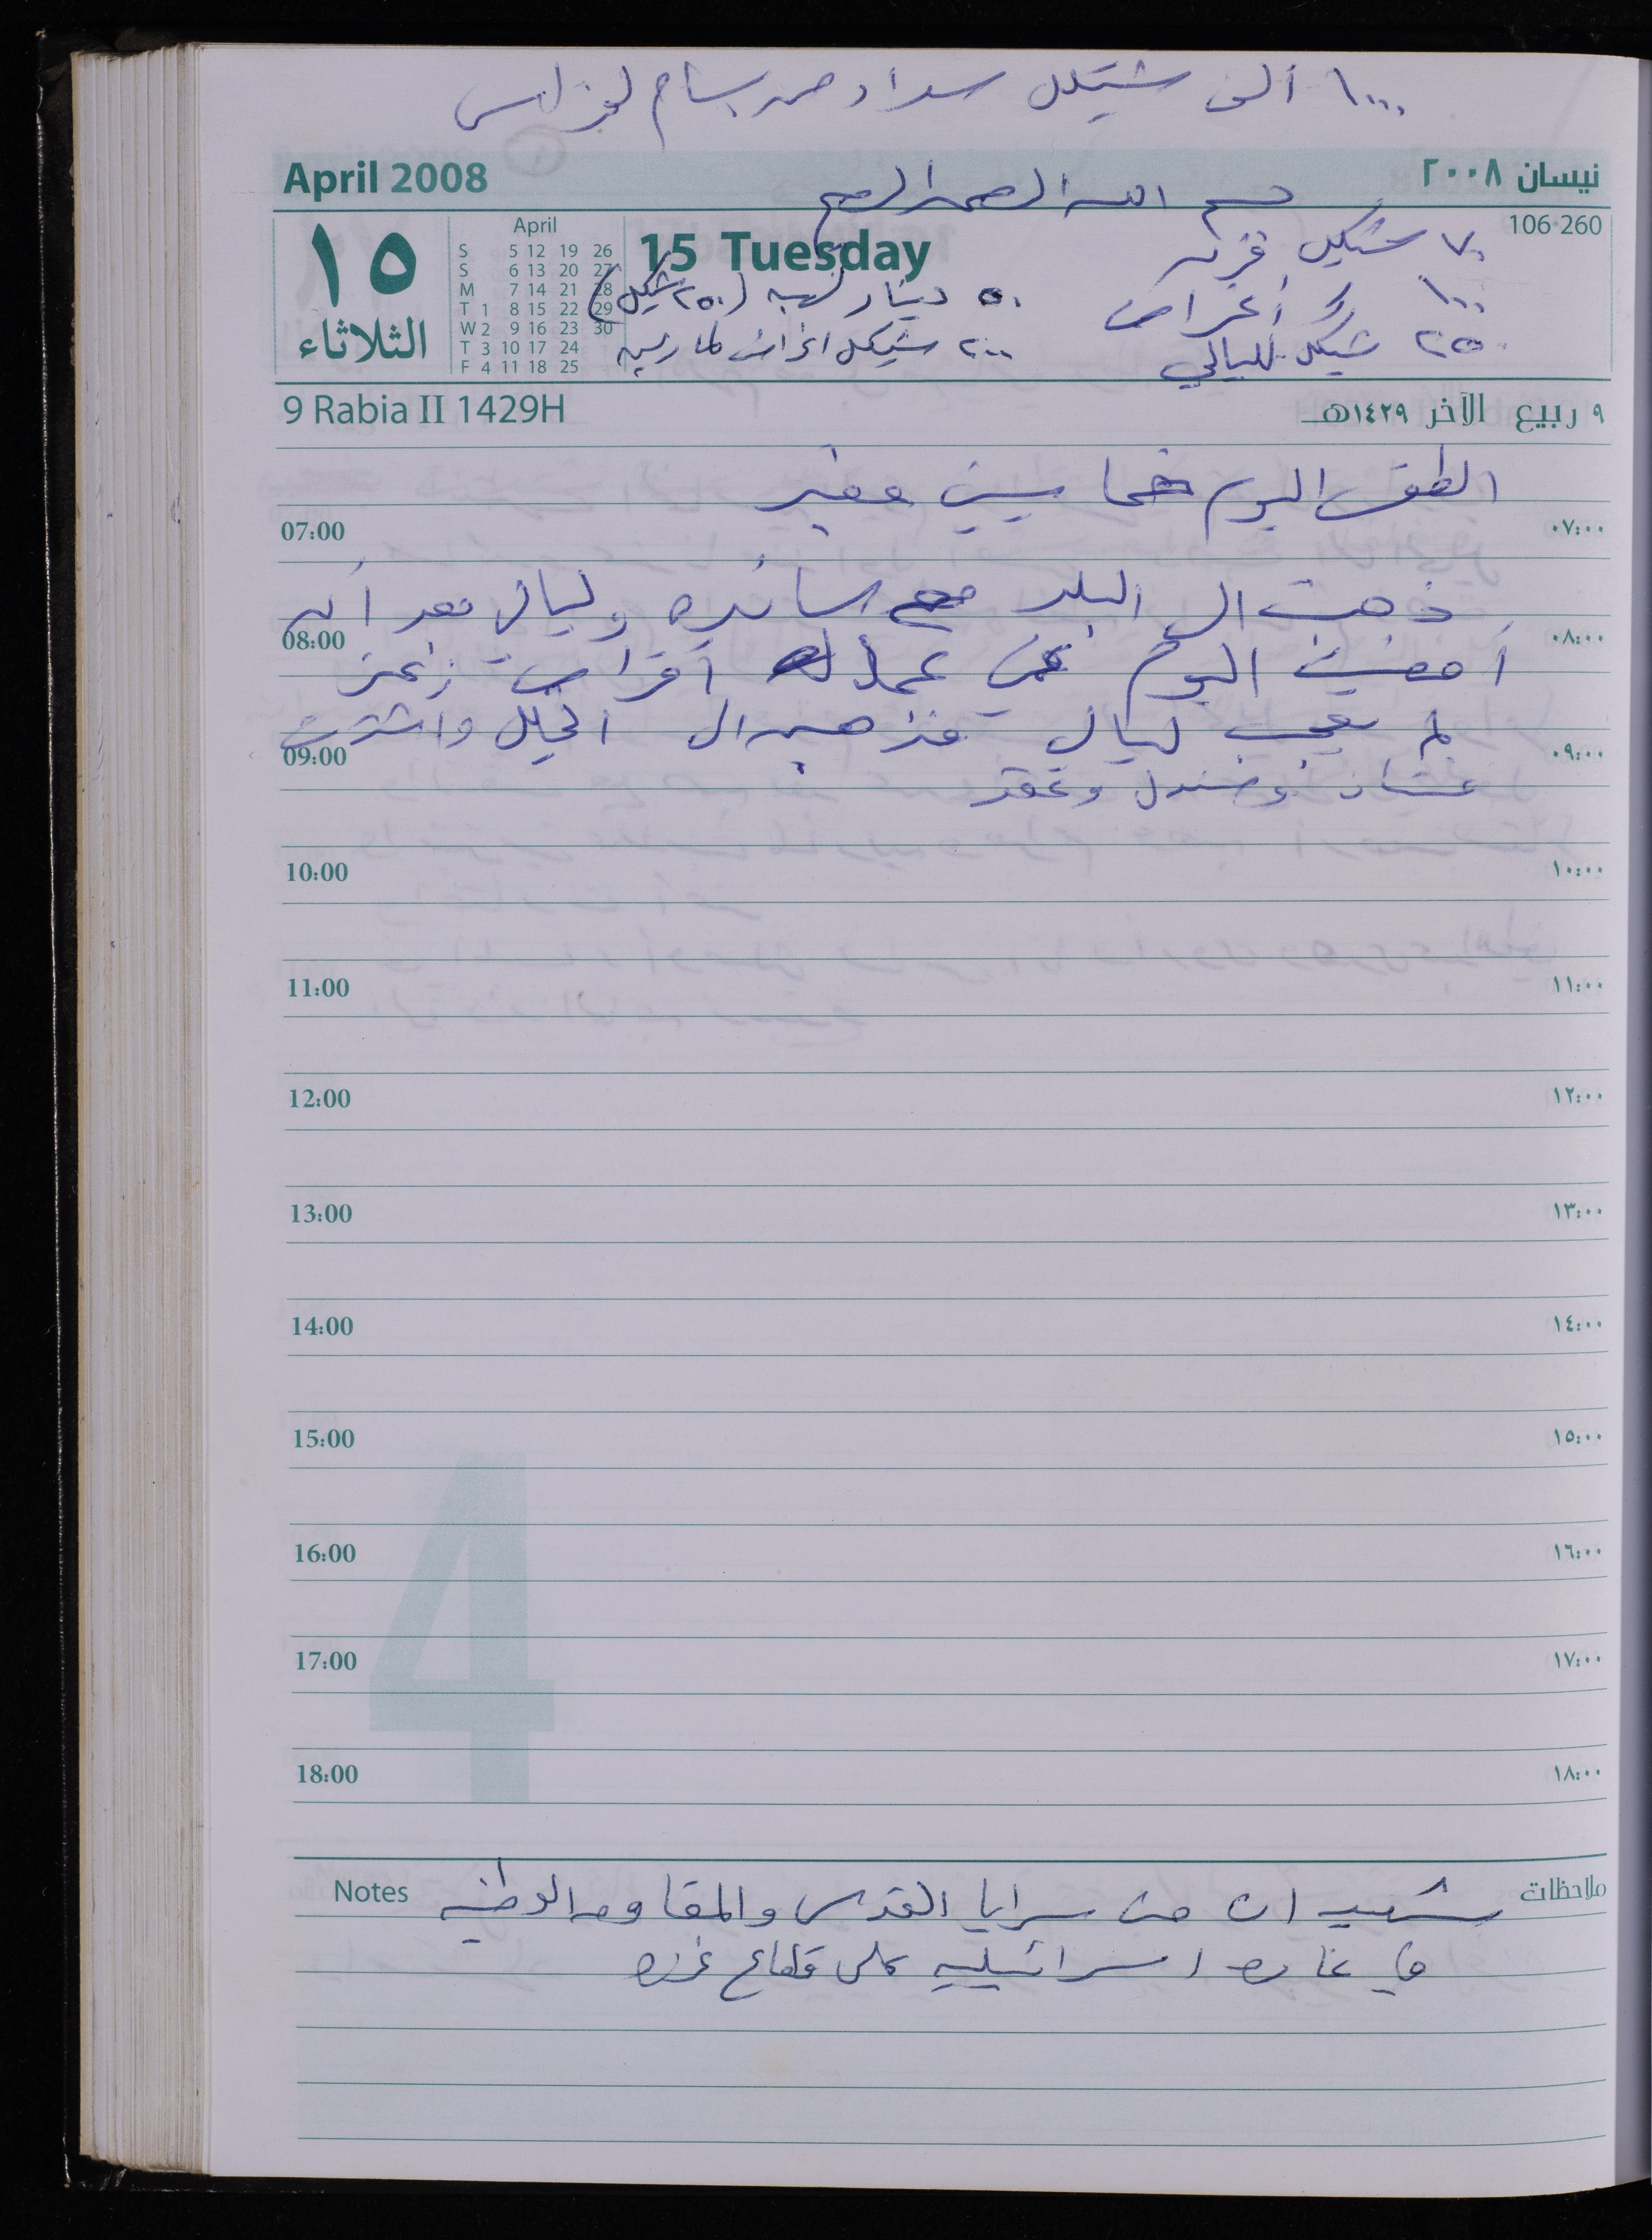 ١٠٠٠ ألف شيكل سداد من بسام
April 2008
نيسان ٢٠٠٨
بسم الله الرحمن الرحيم
106-260
١٥
الثلاثاء
April
S 5 12 19 26
S 6 13 20 27
M 7 14 21 28
T 1 8 15 22 29
W 2 9 16 23 30
T 3 10 17 24
F 4 11 18 25
15 Tuesday
٧٠ شيكل
١٠٠ أغراض
٢٥٠ شيكل لليالي
٥٠ دينار لهبه (٢٥٠ شيكل)
٢٠٠ شيكل اغراض لماريه
9 Rabia II 1429H
٩ ربيع الآخر ١٤٢٩هـ
الطقس اليوم خماسيني مغبر
07:00 ٠٧:٠٠
ذهبت الى البلد مع سائده وليالي بعد أن
08:00 ٠٨:٠٠
أمضيت اليوم في عمل أقراص زعتر
لم يعجب ليالي فذهبت الى الخليل واشترت
09:00 ٠٩:٠٠
وصندل وعقد
10:00 ١٠:٠٠
11:00 ١١:٠٠
12:00 ١٢:٠٠
13:00 ١٣:٠٠
14:00 ١٤:٠٠
15:00 ١٥:٠٠
16:00 ١٦:٠٠
17:00 ١٧:٠٠
18:00 ١٨:٠٠
4
Notes
ملاحظات
شهيدان من سرايا القدس والمقاومه الوطنيه
في غاره اسرائيليه على قطاع غزه